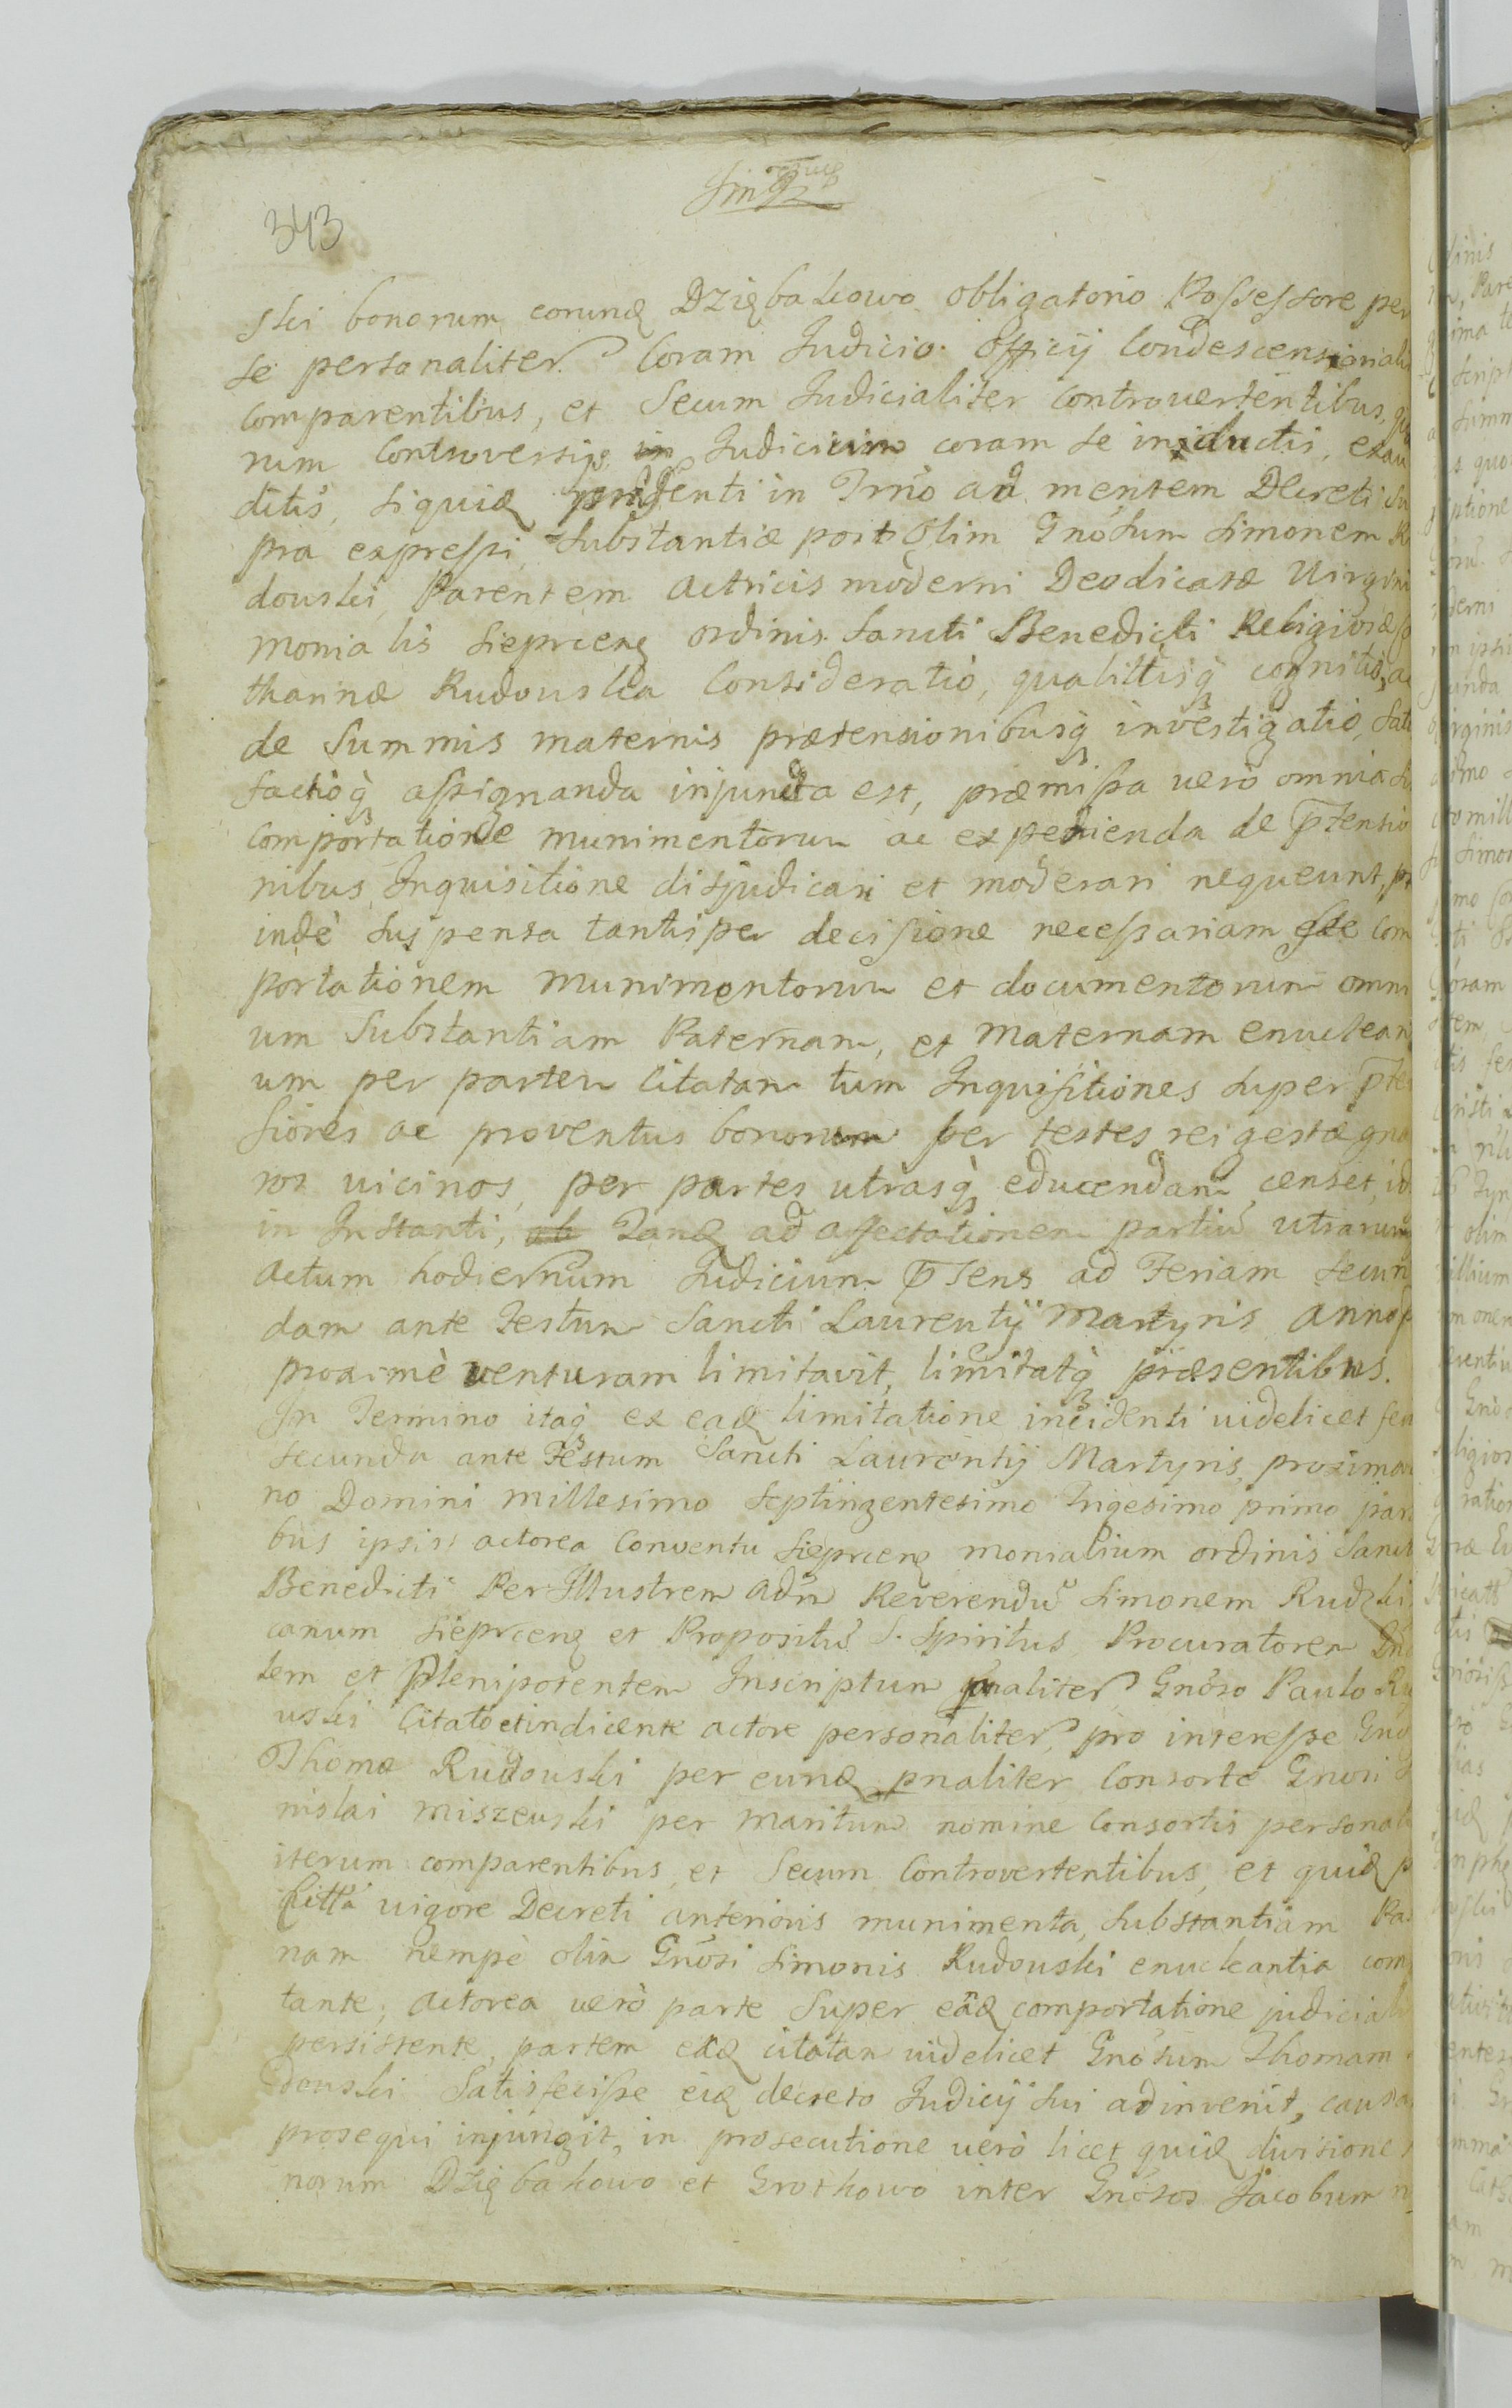 343
ski bonorum eorundꝫ Dziębakowo obligatorio Possessore per
se personaliter Coram Judicio Officij Condescensionali
comparentibus, et Secum Judicialiter controvertentibus, quo
rum Controversijs in Judicium coram se inductis, exau
ditis, siquidꝫ in Trño ad mentem Decreti su
pra expressi Substantiæ post Olim Gnosum Simonem Ru
douski Parentem actricis moderni Deodicatæ Virgini
monialis Sieprcenꝫ ordinis Sancti Benedicti Religiosæ
tharinæ Rudouska Consideratio, qualittisqꝫ cognitio, ac
de Summis maternis prætensionibusqꝫ investigatio, Satis
factioqꝫ assignanda injuncta est, præmissa vero omnia
comportatione munimentorum ac expedienda de p̄tensio
nibus Inquisitione disjudicari et moderari nequeunt, pro
indè Suspensa tantisper decisione necessariam com
portationem munimentorum et documentorum omni
um Substantiam Paternam, et Maternam enuclean
um per partem Citatam tum Inquisitiones Super p̄ten
siones ac proventus bonorum per testes rei gestæ gna
ros vicinos, per partes utrasqꝫ educendam censet,
in Instanti, Tandꝫ ad affectationem partiū utrarum
actum hodiernum Judicium p̄sens ad Feriam Secun
dam ante Festum Sancti Laurentij Martyris anno
proximè venturam limitavit, limitatqꝫ præsentibus.
In Termino itaqꝫ ex eadꝫ limitatione incidenti videlicet feria
secunda ante Festum Sancti Laurentij Martyris, proxima
no Domini millesimo Septingentesimo Trigesimo primo par
bus ipsis actorea Conventu Sieprcenꝫ monialium ordinis Sancti
Benedicti Per Illustrem Adm̄ Reverendū Simonem Rudzki
canum Sieprcenꝫ et Propositū S. Spiritus Procuratorem
tem et Plenipotentem Inscriptum pnaliter Gnoso Paulo Ru
uski Citato et indicente actore personaliter, pro interesse Gno
Thomæ Rudouski per eundꝫ pnaliter Consorte Gnosi
nislai Miszeuski per Maritum nomine Consortis personal
iterum comparentibus, et Secum Controvertentibus, et quidꝫ p
Citta vigore Decreti anterioris munimenta, Substantiam Pa
nam nempè olim Gnosi Simonis Rudouski enucleantia com
tante, actorea verò parte Super eadꝫ comportatione judiciali
persistente, partem eadꝫ citatam videlicet Gnosum Thomam
douski Satisfecisse eidꝫ decreto Judicij Sui adinvenit, causam
prosequi injungit, in prosecutione verò licet quidꝫ divisione
norum Dziębakowo et Grotkowo inter Gnosos Jacobum